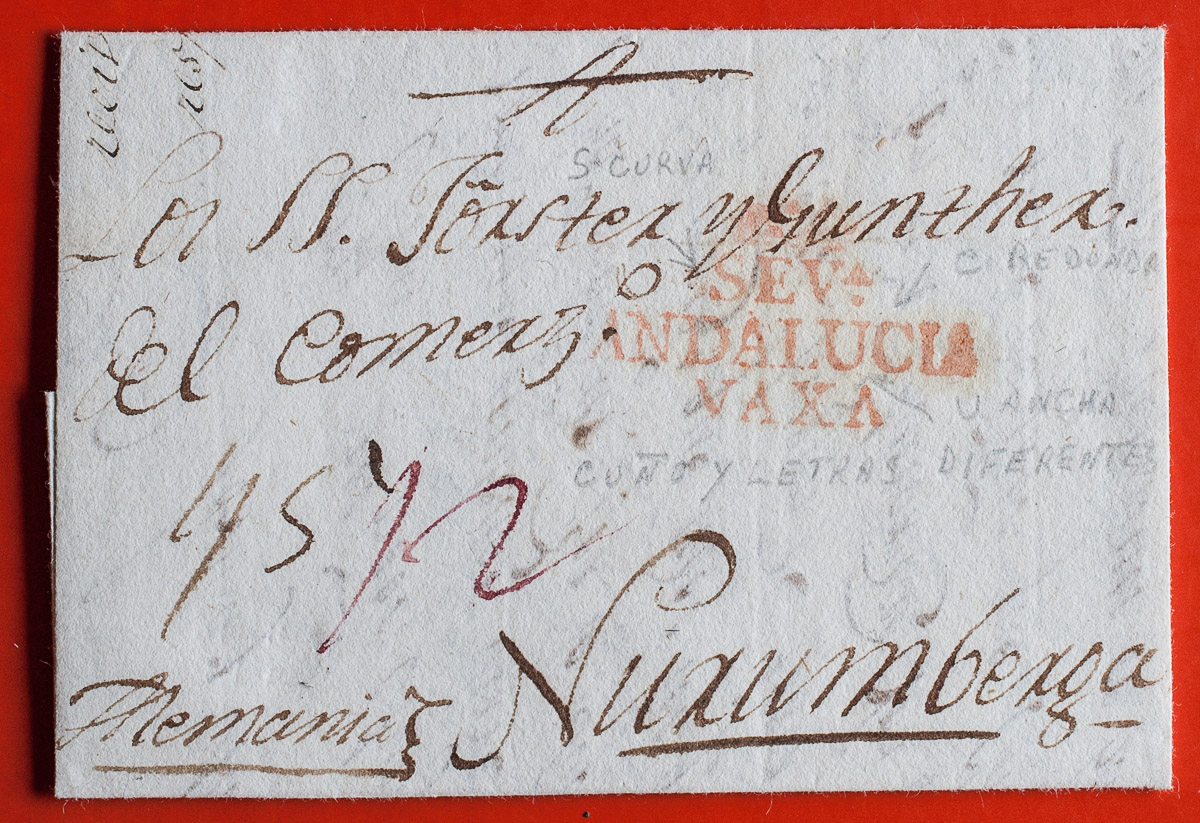 A
Los SS. Förster y Gunther.
Del Comerzo
SEVA
ANDALUCIA
VAXA
S CURVA
C REDONDA
U ANCHA
CUÑO Y LETRAS DIFERENTES
Alemania}
Nurumberga